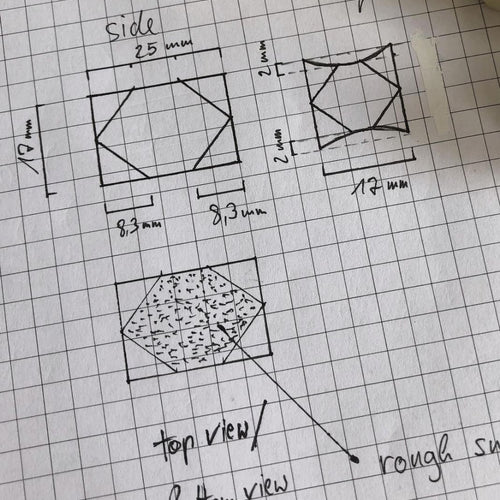 side
25 mm
17 mm
8,3 mm
8,3 mm
2 mm
2 mm
17 mm
top view/
bottom view
rough